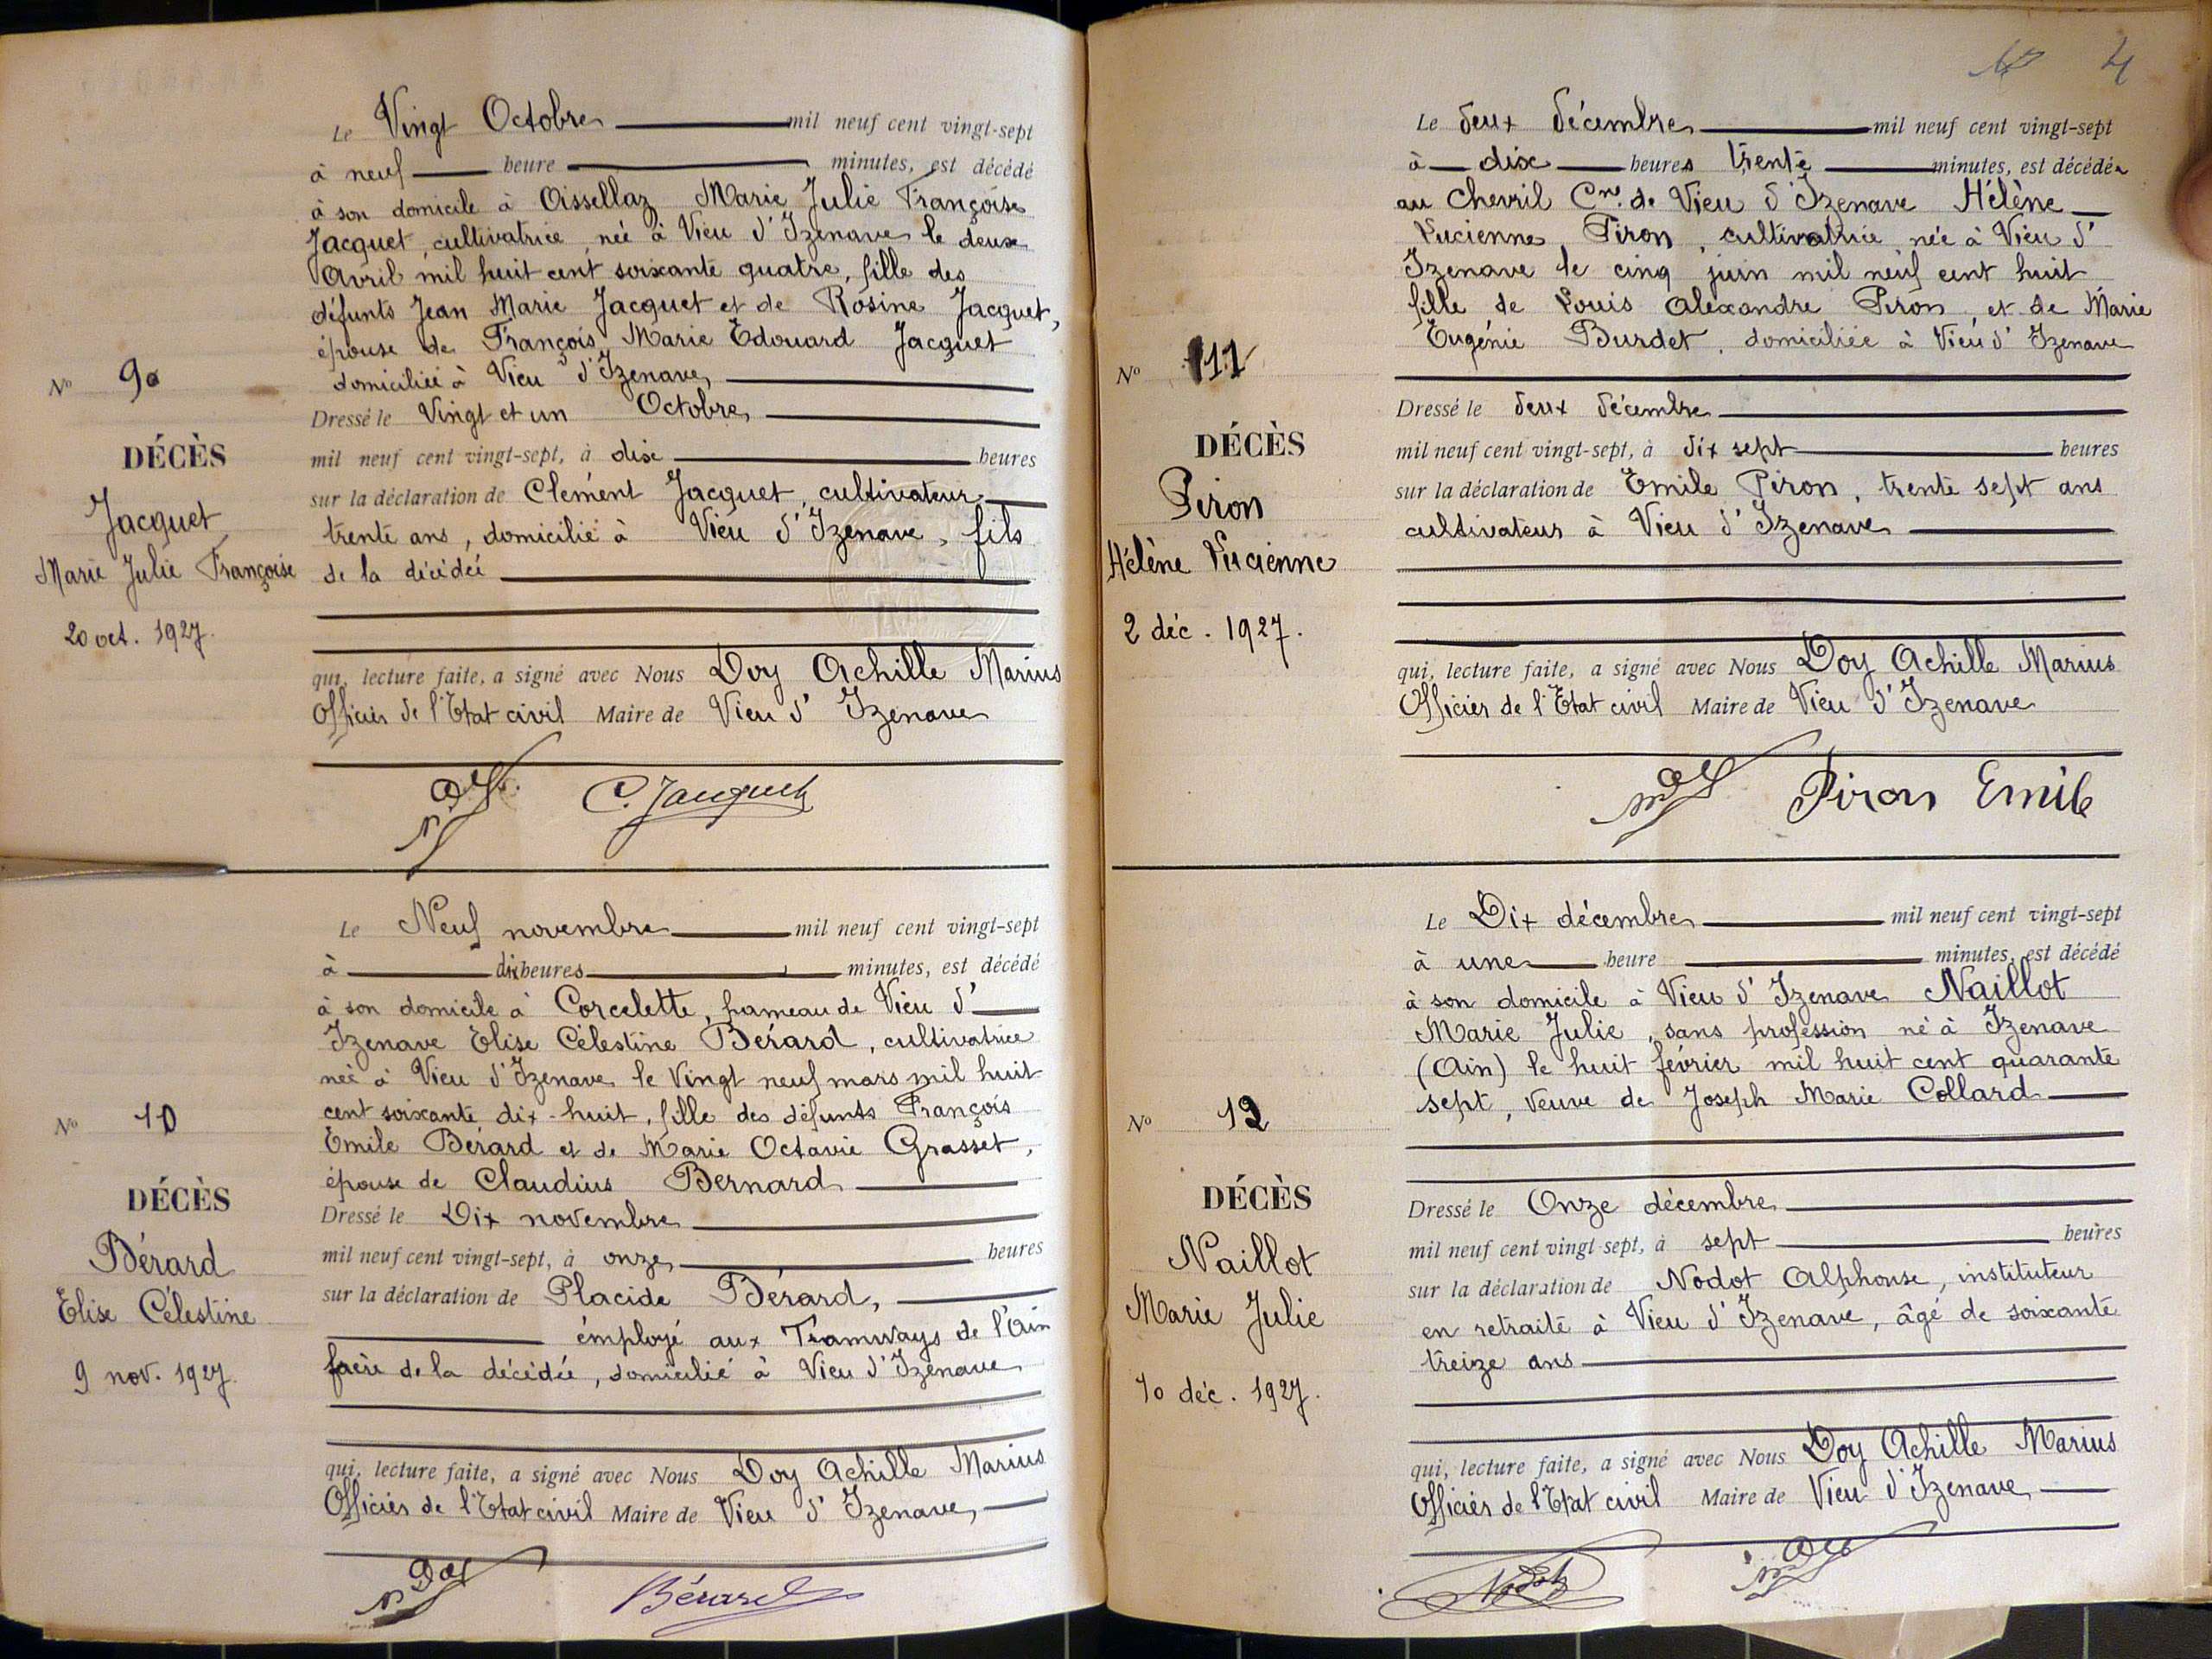 Le Vingt Octobre mil neuf cent vingt-sept
à neuf heure minutes, est décédé
à son domicile à Oissellaz Marie Julie Françoise
Jacquet, cultivatrice, née à Vieu d'Izenave le deux
Avril mil huit cent soixante quatre, fille des
défunts Jean Marie Jacquet et de Rosine Jacquet,
épouse de François Marie Edouard Jacquet
domiciliée à Vieu d'Izenave
Dressé le Vingt et un Octobre
mil neuf cent vingt-sept, à dix heures
sur la déclaration de Clément Jacquet, cultivateur
trente ans, domicilié à Vieu d'Izenave, fils
de la décédée
qui, lecture faite, a signé avec Nous Doy Achille Marius
Officier de l'Etat civil Maire de Vieu d'Izenave
C. Jacquet
No 9
DÉCÈS
Jacquet
Marie Julie Françoise
20 oct. 1927.
Le Neuf novembre mil neuf cent vingt-sept
à dix heures minutes, est décédé
à son domicile à Corcelette, hameau de Vieu d'
Izenave Elise Célestine Bérard, cultivatrice
née à Vieu d'Izenave le Vingt neuf mars mil huit
cent soixante dix-huit, fille des défunts François
Emile Bérard et de Marie Octavie Grasset,
épouse de Claudius Bernard
Dressé le Dix novembre
mil neuf cent vingt-sept, à onze heures
sur la déclaration de Placide Bérard,
émployé aux Tramways de l'Ain
frère de la décédée, domicilié à Vieu d'Izenave
qui, lecture faite, a signé avec Nous Doy Achille Marius
Officier de l'Etat civil Maire de Vieu d'Izenave,
Bérard
No 10
DÉCÈS
Bérard
Elise Célestine
9 nov. 1927.
4
Le deux décembre mil neuf cent vingt-sept
à dix heures trente minutes, est décédée
au Chevril Cne de Vieu d'Izenave Hélène
Lucienne, Piron, cultivatrice née à Vieu d'
Izenave le cinq juin mil neuf cent huit
fille de Louis Alexandre Piron, et de Marie
Eugénie Burdet, domiciliée à Vieu d'Izenave
Dressé le deux décembre
mil neuf cent vingt-sept, à dix sept heures
sur la déclaration de Emile Piron, trente sept ans
cultivateur à Vieu d'Izenave
qui, lecture faite, a signé avec Nous Doy Achille Marius
Officier de l'Etat civil Maire de Vieu d'Izenave
Piron Emile
No 11
DÉCÈS
Piron
Hélène Lucienne
2 déc. 1927.
Le Dix décembre mil neuf cent vingt-sept
à une heure minutes, est décédé
à son domicile à Vieu d'Izenave Naillot
Marie Julie, sans profession né à Izenave
(Ain) le huit février mil huit cent quarante
sept, veuve de Joseph Marie Collard
Dressé le Onze décembre
mil neuf cent vingt-sept, à sept heures
sur la déclaration de Nodot Alphonse, instituteur
en retraite à Vieu d'Izenave, âgé de soixante
treize ans
qui, lecture faite, a signé avec Nous Doy Achille Marius
Officier de l'Etat civil Maire de Vieu d'Izenave,
Nodot
No 12
DÉCÈS
Naillot
Marie Julie
10 déc. 1927.